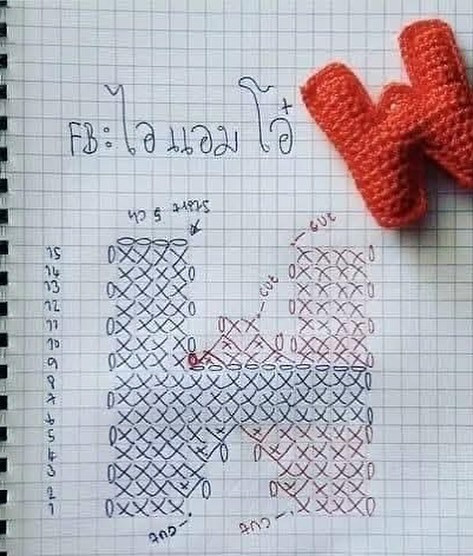 FB: ไอ แอม โอ๋
start 5 ch
cut
15
14
13
cut
12
11
10
9
8
7
6
5
4
3
2
1
cut
cut